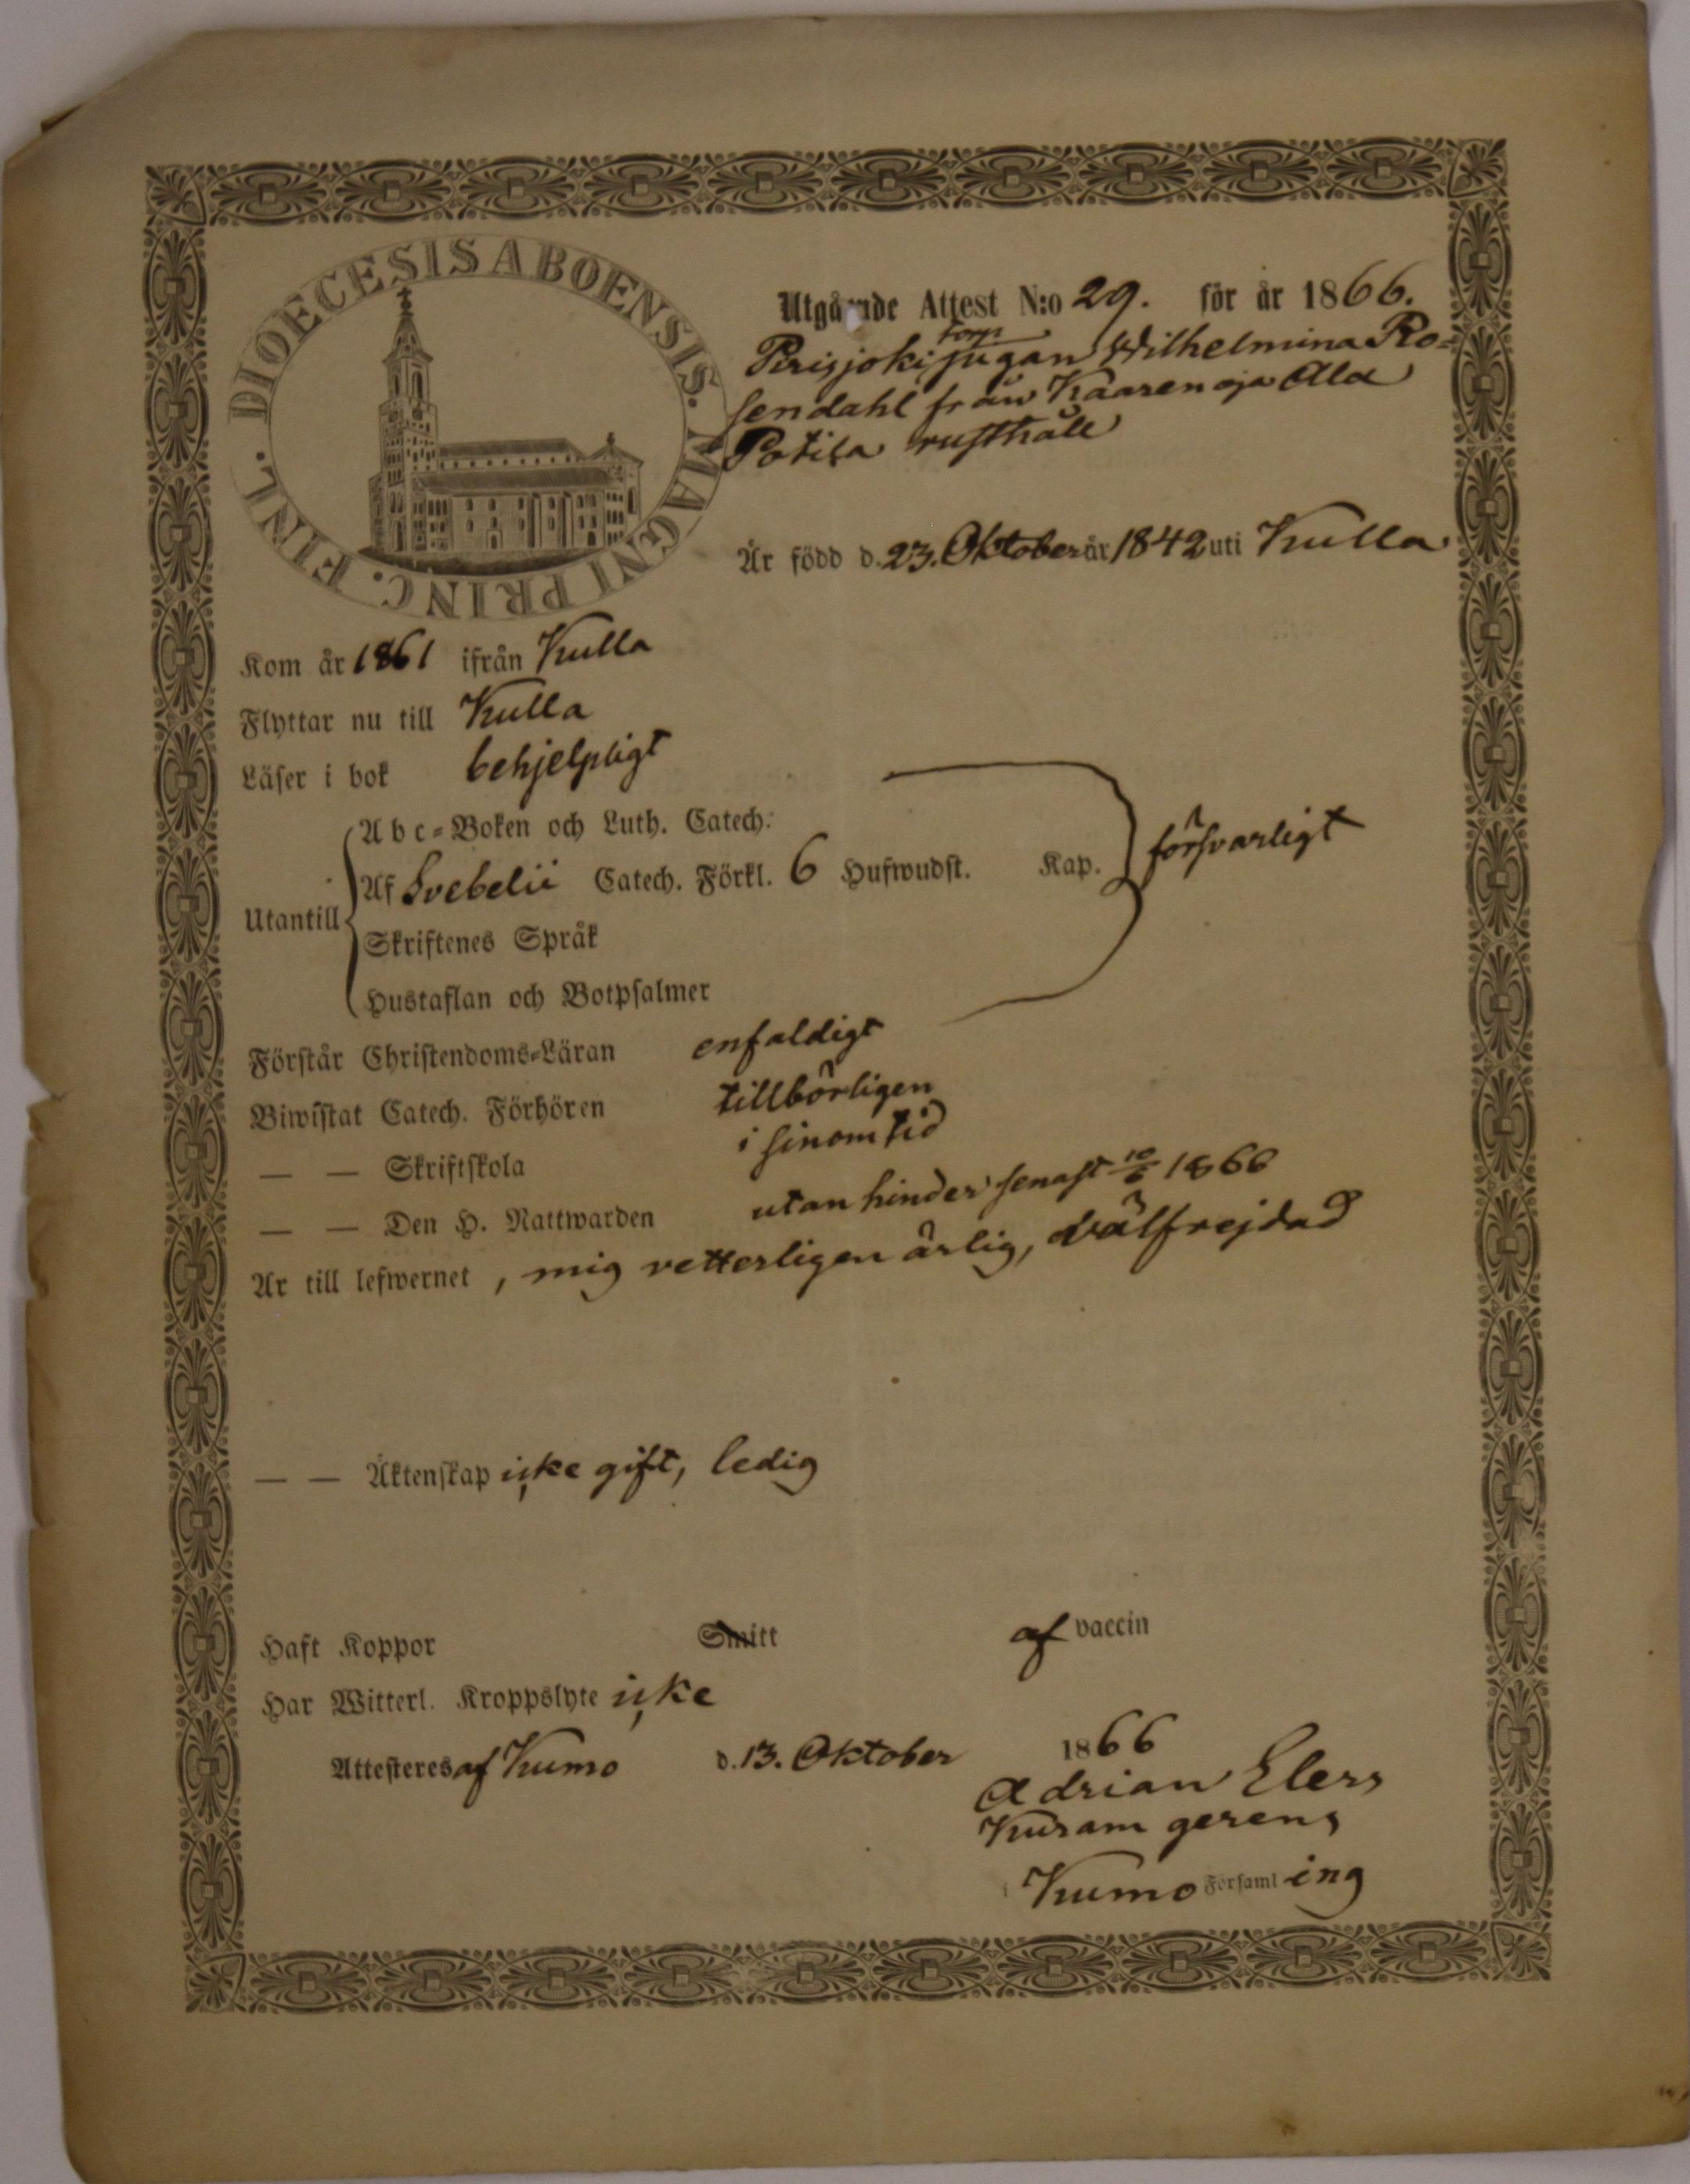 DIOECESIS ABOENSIS. MAGNI PRINC. FINL.
Utgående Attest N:o 29. för år 1866.
torp
Pirisjoki jugan Wilhelmina Ro=
sendahl från Kaarenoja Ala
Potila rusthåll
Är född d. 23. Oktober år 1842 uti Kulla
Kom år 1861 ifrån Kulla
Flyttar nu till Kulla
Läser i bok behjelpligt
Abc=Boken och Luth. Catech.
Af Svebelii Catech. Förkl. 6 Hufwudst. Kap. försvarligt
Utantill
Skriftenes Språk
Hustaflan och Botpsalmer
Förstår Christendoms=Läran enfaldigt
Biwistat Catech. Förhören tillbörligen
— — Skriftskola i sinom tid
— — Den H. Nattwarden utan hinder senast 10/6 1866
Är till lefwernet, mig vetterligen ärlig, välfrejdad
— — Äktenskap icke gift, ledig
Haft Koppor Smitt af vaccin
Har Witterl. Kroppslyte icke
Attesteres af Kumo d. 13. Oktober 1866
Adrian Elers
Kuram gerens
i Kumo Församling